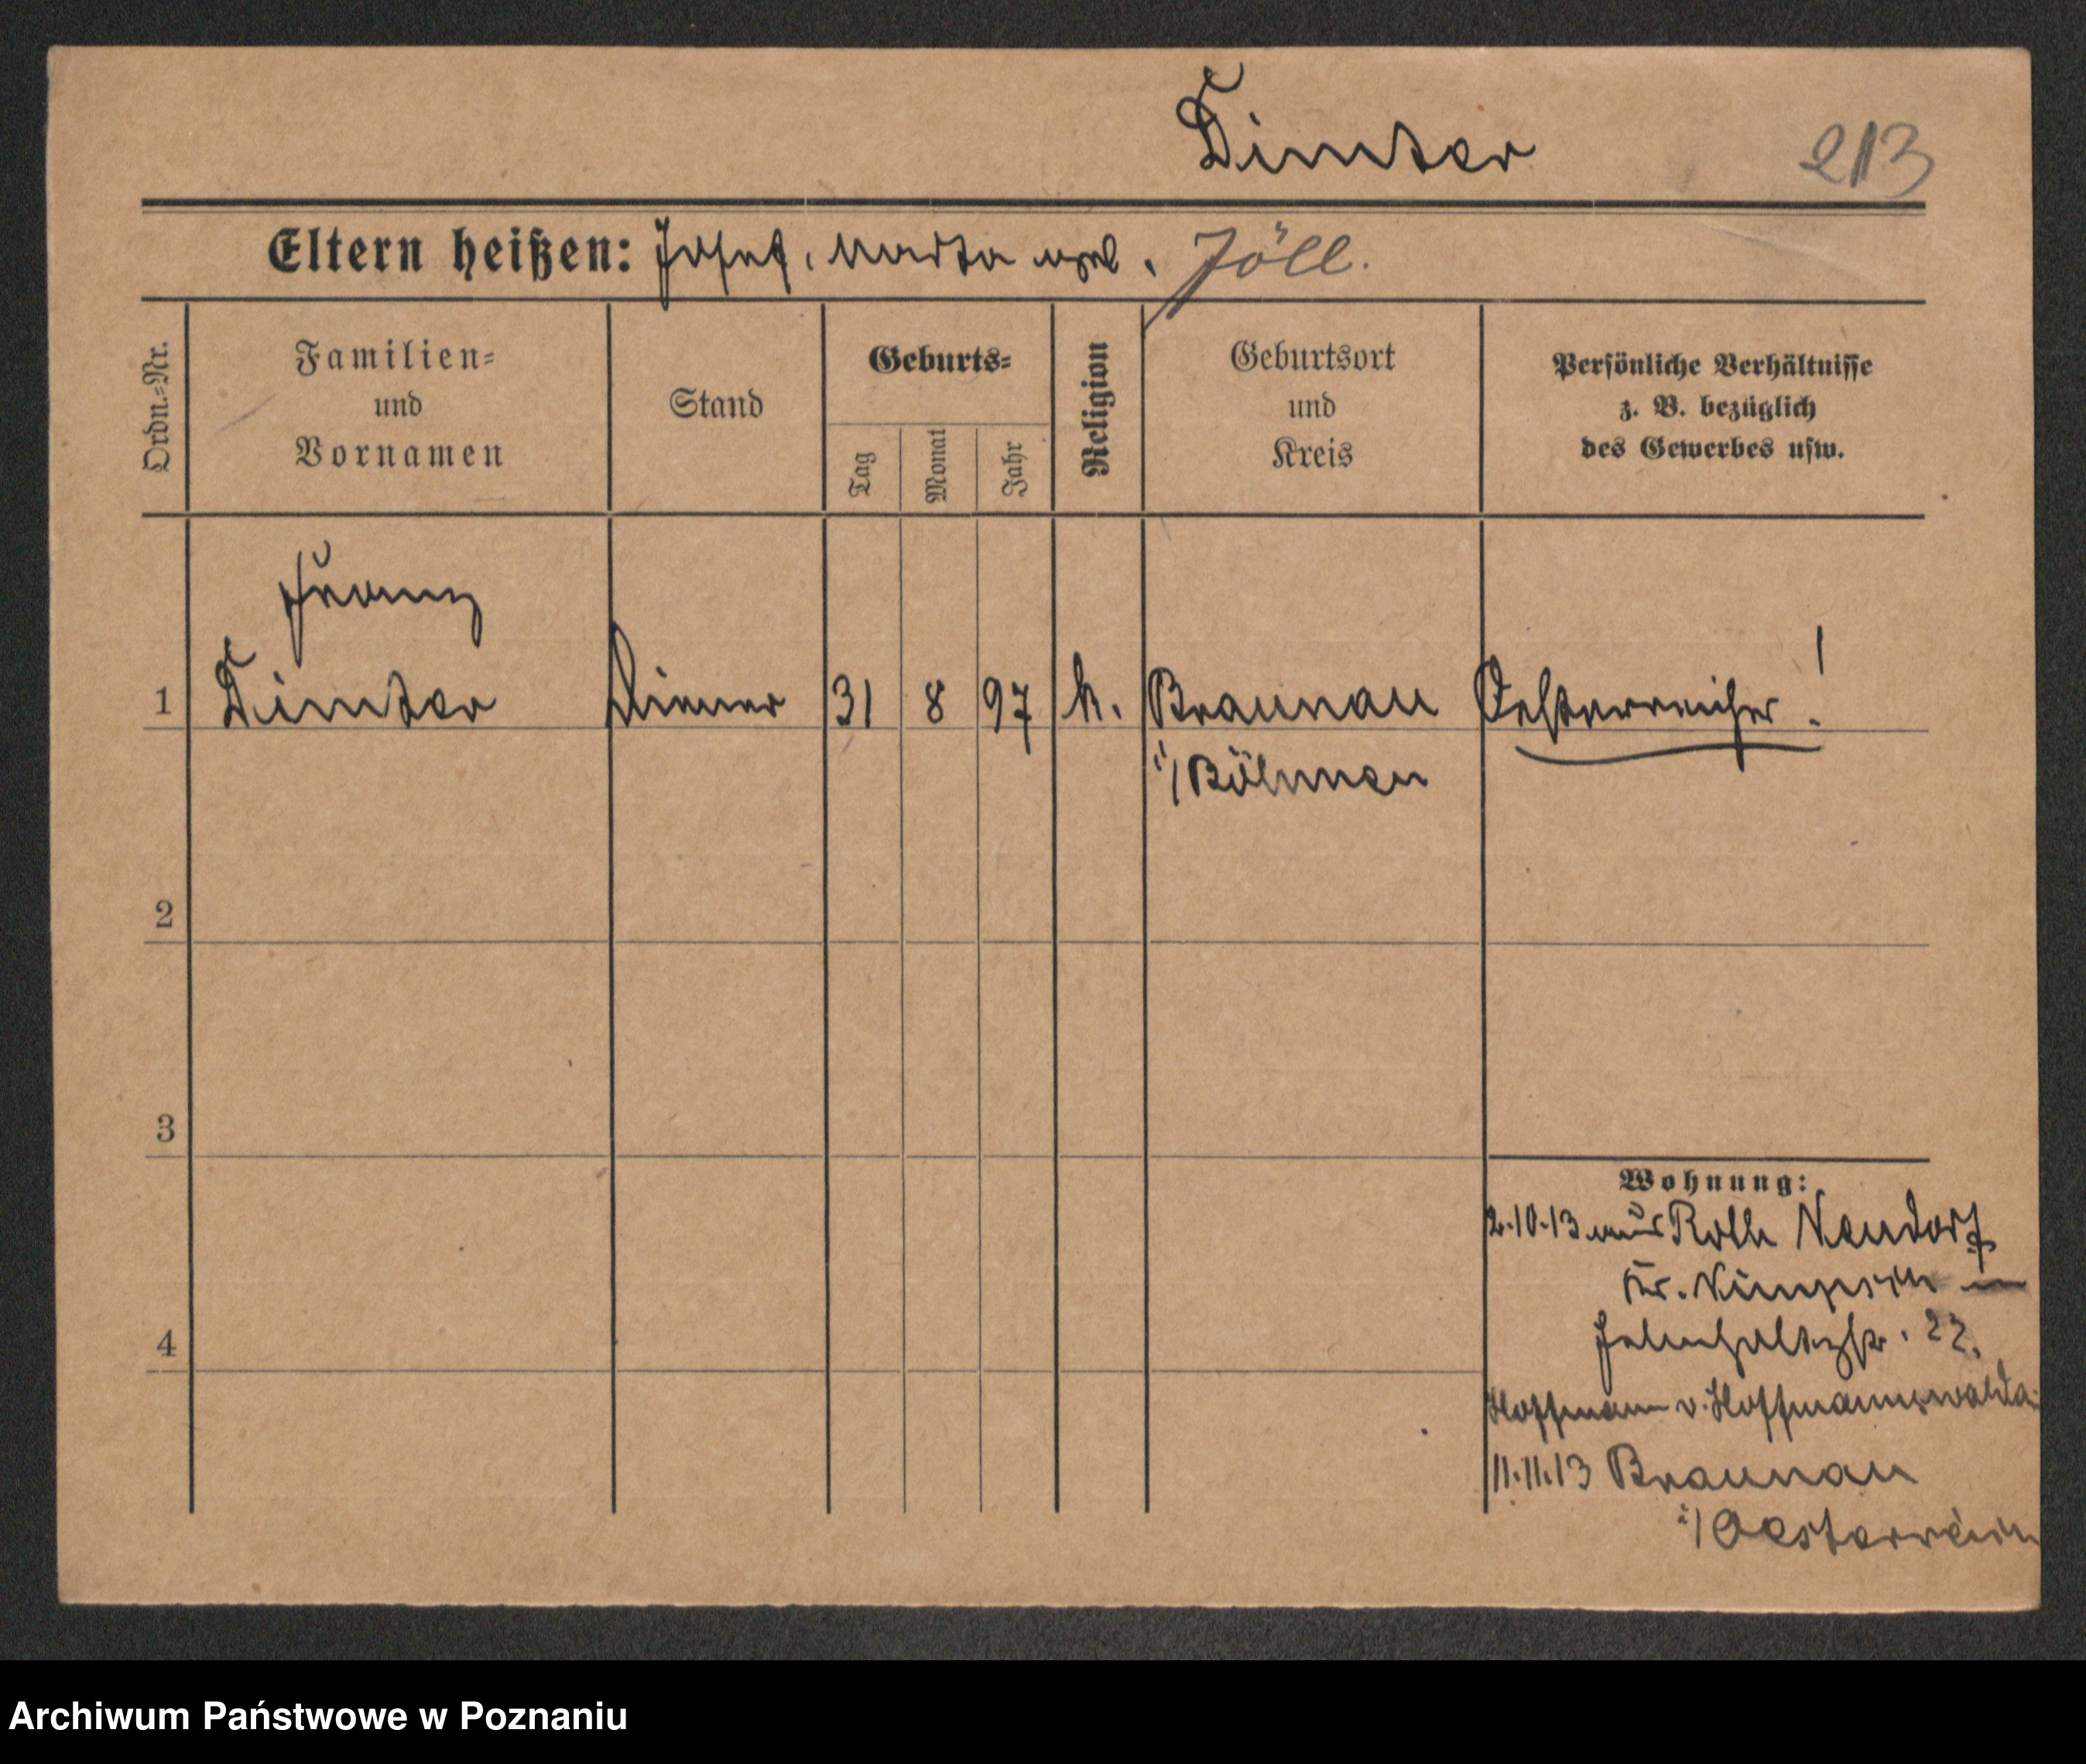 Dimter 213
Eltern heißen: Josef, Marta geb. Jöll.
Ordn.=Nr.
Familien=
und
Vornamen
Stand
Geburts=
Tag
Monat
Jahr
Religion
Geburtsort
und
Kreis
Persönliche Verhältnisse
z. B. bezüglich
des Gewerbes usw.
Franz
1 Dimter Diener 31 8 97 k. Braunau Oesterreicher!
i/Böhmen
2
3
4
Wohnung:
2.10.13 aus Roth Neudorf
Kr. Nimptsch
22.
Hoffmann v. Hoffmannswaldau
11.11.13 Braunau
i/Oesterreich
Archiwum Państwowe w Poznaniu